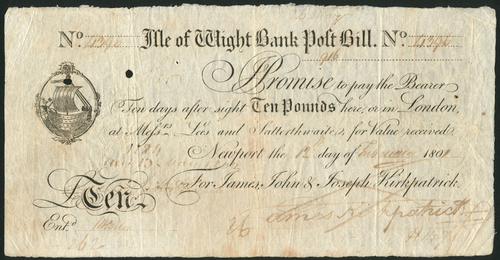 No. Isle of Wight Bank Post Bill. No.
I Promise to pay the Bearer
Ten days after sight Ten Pounds here, or in London,
at Messrs. Lees and Satterthwaite's, for Value received
Newport the day of February 180
£Ten For James, John & Joseph Kirkpatrick.
Entd. James Kirkpatrick